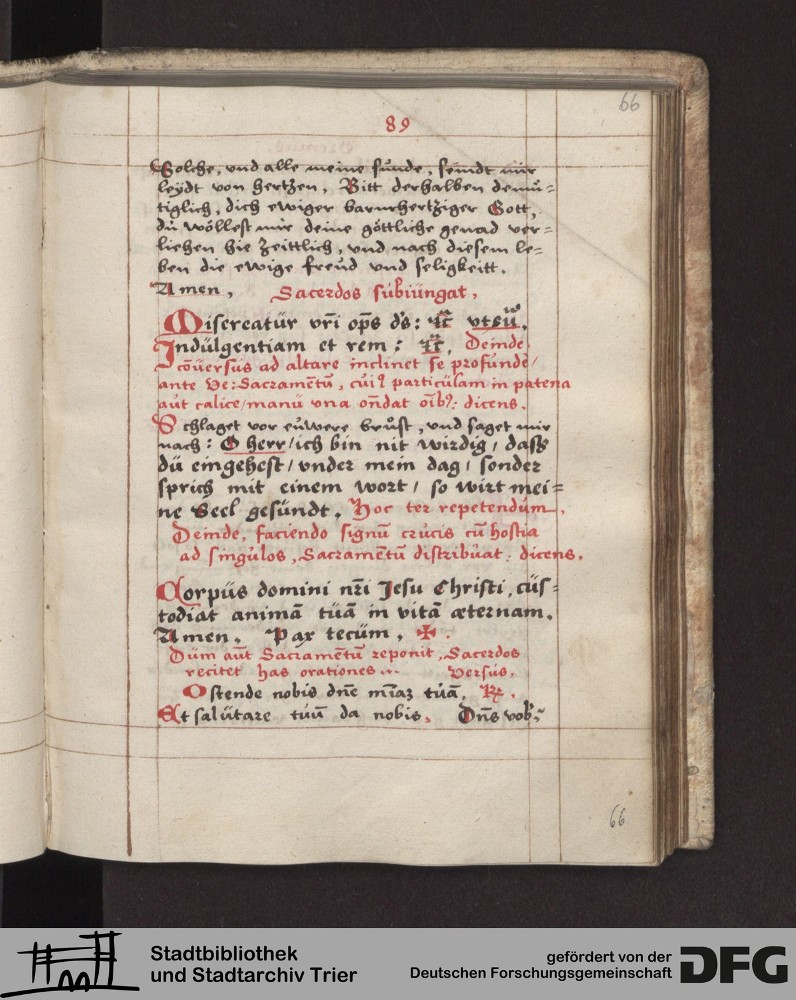 66
89
Solche, vnd alle meine sünde, seindt mir
leÿdt von hertzen, Bitt derhalben demü=
tiglich, dich ewiger barmhertziger Gott,
dü wöllest mir deine göttliche genad ver=
liehen hie Zeittlich, vnd nach diesem le=
ben die ewige freüd vnd seligkeitt.
Amen, Sacerdos sübiüngat,
Misereatür vr̄i op̄s d's: ⁊c̄ vtsū.
Indülgentiam et rem: ⁊c̄. Deinde
cōüersüs ad altare inclinet se profünde/
ante Ve: Sacramentū, cüiꝰ particülam in patena
aüt calice/manü vna on̄dat oībꝰ: dicens.
Schlaget vor eüwere brüst, vnd saget mir
nach: O herr/ich bin nit wirdig/ dass
dü eingehest/ vnder mein dag/ sonder
sprich mit einem wort/ so wirt mei=
ne Seel gesündt. Hoc ter repetendüm.
Deinde, faciendo signū crücis cū hostia
ad singülos, Sacramentū distribüat: dicens.
Corpüs domini nr̄i Jesu Christi, cüs=
todiat animā tüā in vitā æternam.
Amen. Pax tecüm. ✠.
Düm aūt Sacramentū reponit, Sacerdos
recitet has orationes... Versüs.
Ostende nobis dn̄e m̄iaʒ tüā. ℟.
Et salütare tüū da nobis. Dn̄s vob:
66
Stadtbibliothek
und Stadtarchiv Trier
gefördert von der
Deutschen Forschungsgemeinschaft
DFG